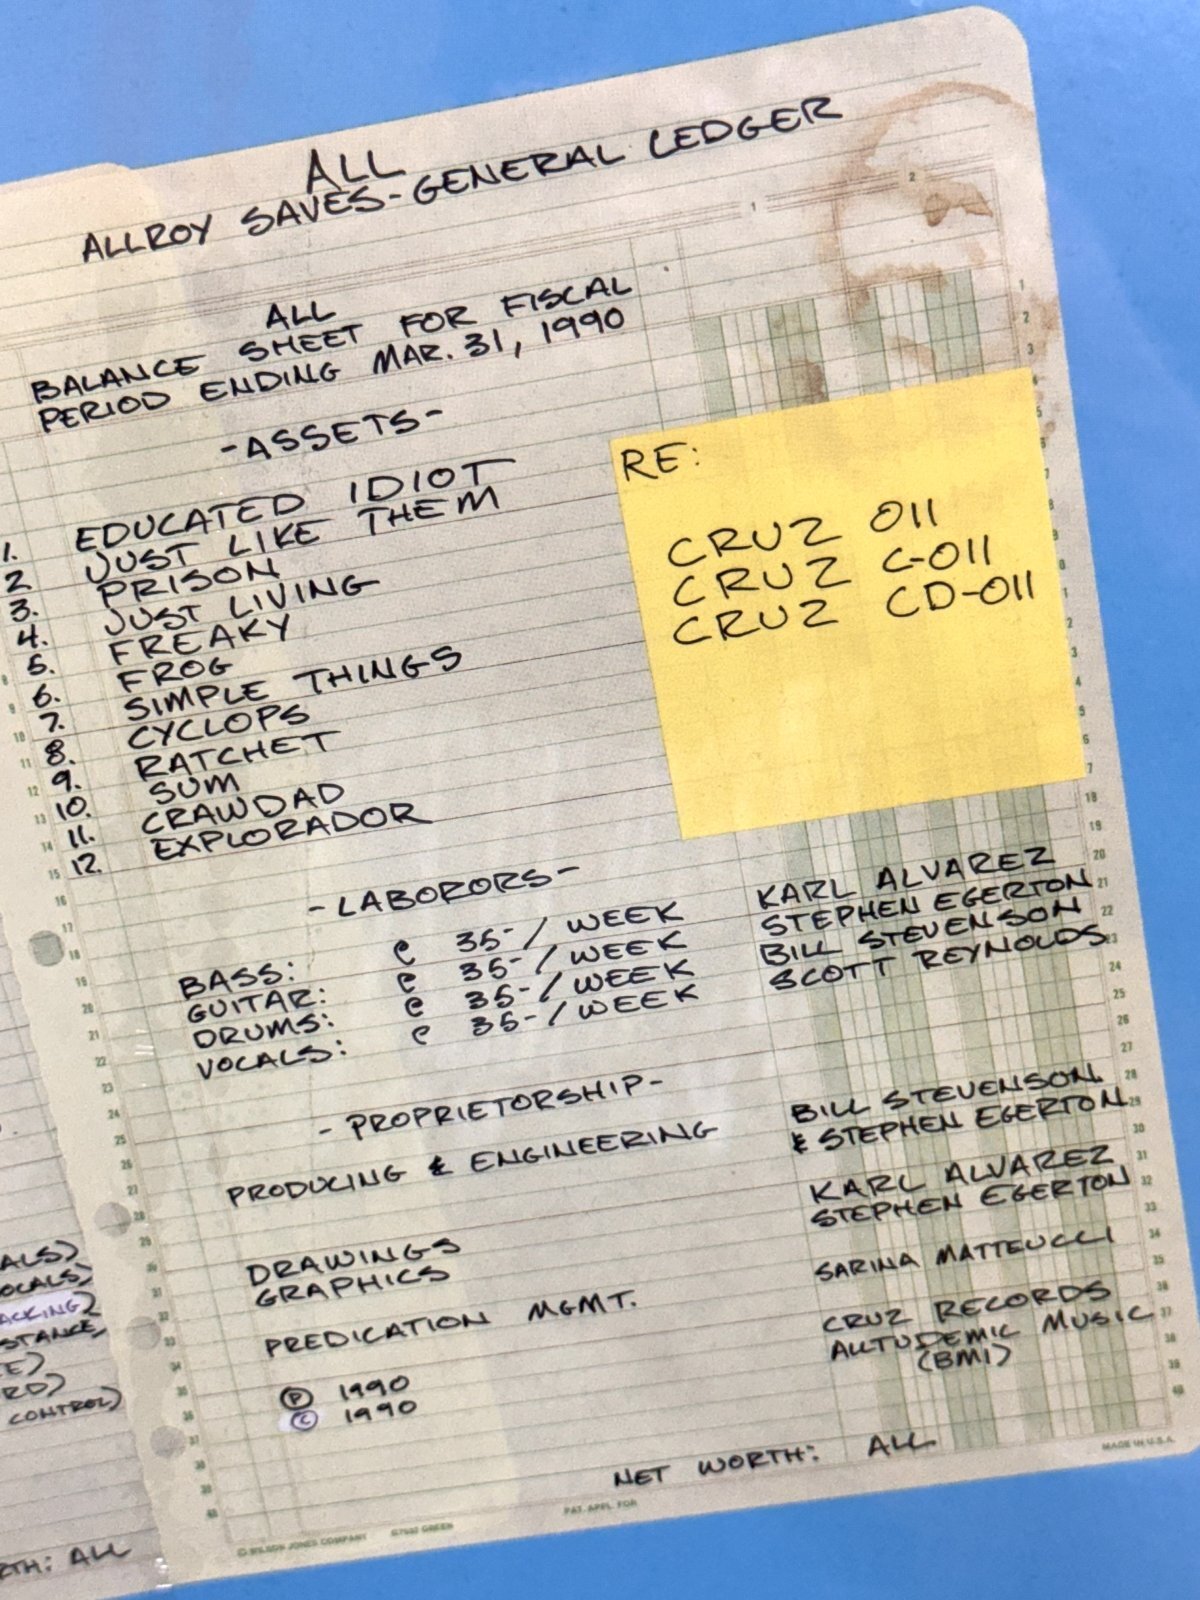 ALL
ALLROY SAVES-GENERAL LEDGER
ALL
BALANCE SHEET FOR FISCAL
PERIOD ENDING MAR. 31, 1990
-ASSETS-
1. EDUCATED IDIOT
2 JUST LIKE THEM
3. PRISON
4. JUST LIVING
5. FREAKY
6. FROG
7. SIMPLE THINGS
8. CYCLOPS
9. RATCHET
10. SUM
11. CRAWDAD
12. EXPLORADOR
RE:
CRUZ 011
CRUZ C-011
CRUZ CD-011
-LABORORS-
BASS: @ 35-/WEEK KARL ALVAREZ
GUITAR: @ 35-/WEEK STEPHEN EGERTON
DRUMS: @ 35-/WEEK BILL STEVENSON
VOCALS: @ 35-/WEEK SCOTT REYNOLDS
-PROPRIETORSHIP-
PRODUCING & ENGINEERING BILL STEVENSON
& STEPHEN EGERTON
DRAWINGS KARL ALVAREZ
GRAPHICS STEPHEN EGERTON
PREDICATION MGMT. SARINA MATTEUCCI
Ⓟ 1990 CRUZ RECORDS
© 1990 ALLTUDEMIC MUSIC
(BMI)
NET WORTH: ALL
ALS)
OCALS)
ACKING)
STANCE,
EE)
RD)
CONTROL)
RTH: ALL
© WILSON JONES COMPANY G7540 GREEN
PAT. APPL. FOR
MADE IN U.S.A.